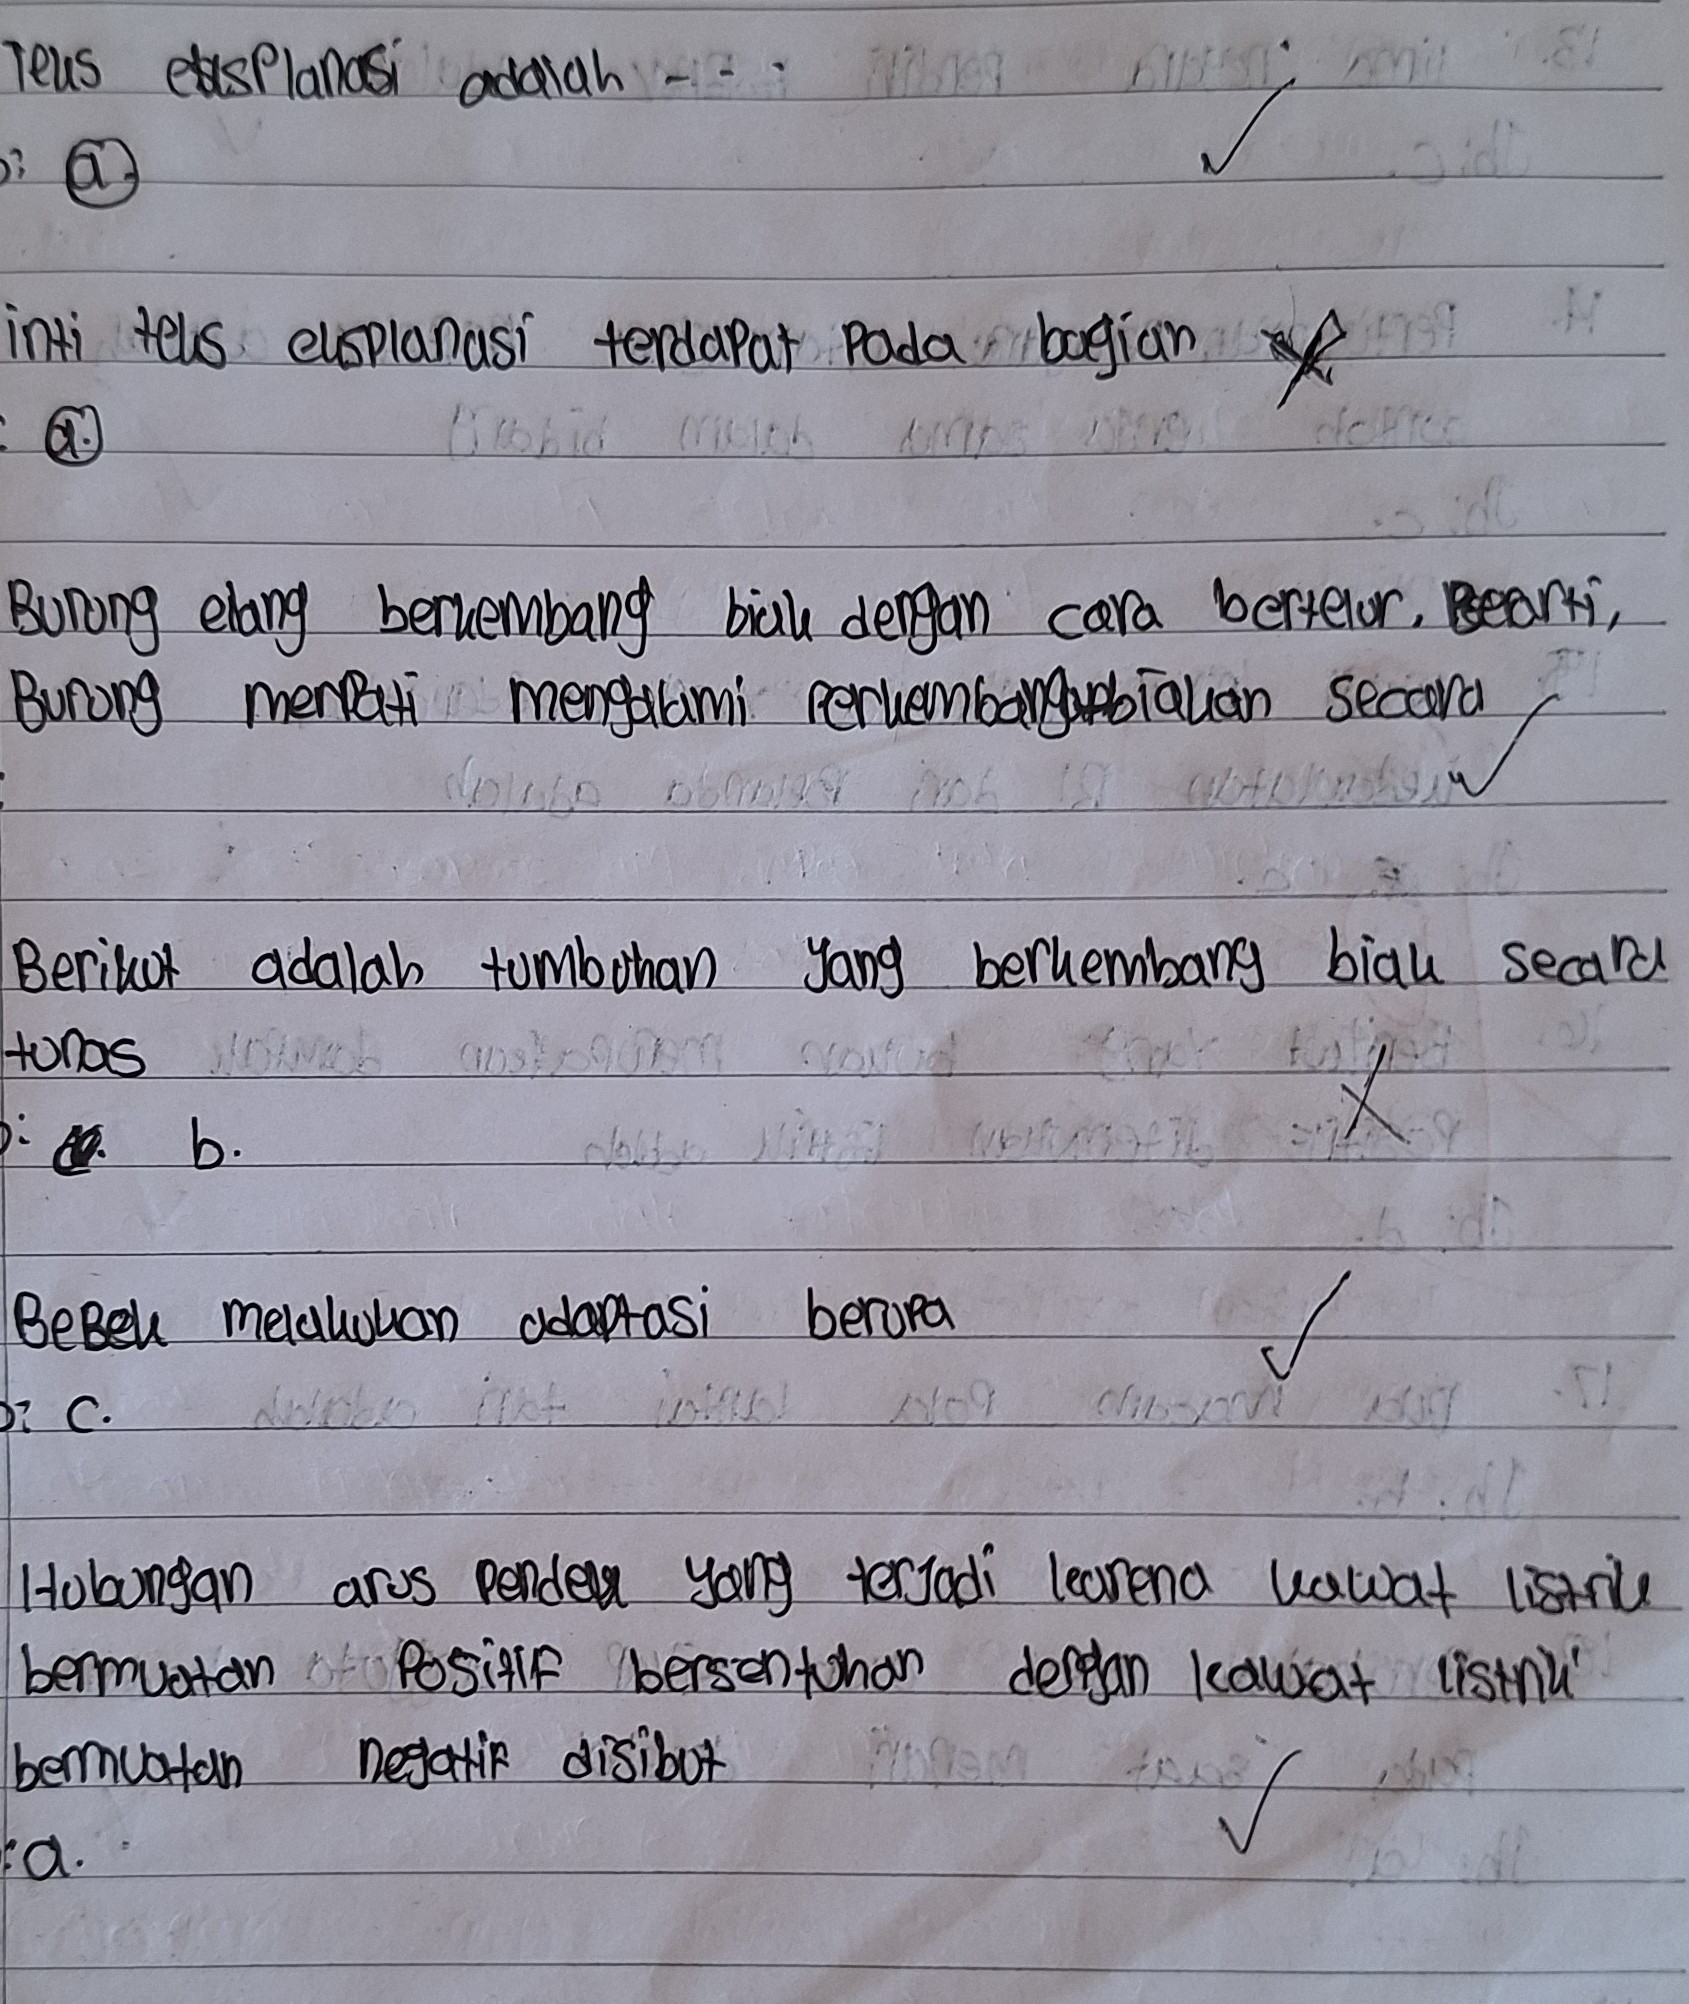 Teks eksplanasi adalah - - -
b: a.
inti teks eksplanasi terdapat pada bagian
: a.
Burung elang berkembang biak dengan cara bertelur. Bearti,
Burung merpati mengalami perkembangbiakan secara
Berikut adalah tumbuhan yang berkembang biak secara
tunas
b: b.
BeBek melakukan adaptasi berupa
b: c.
Hubungan arus pendek yang terjadi karena kawat listrik
bermuatan Positif bersentuhan dengan kawat listrik
bermuatan negatif disibut
: a.